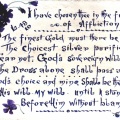 I have chosen thee in the fu
of Affliction
The finest Gold must here be
The Choicest silver purifi
ear not, God's Sovereign Will
The Dross alone shall pass
ods choice and mine shall be th
His Will My Will. until I stand
Before Him without blam